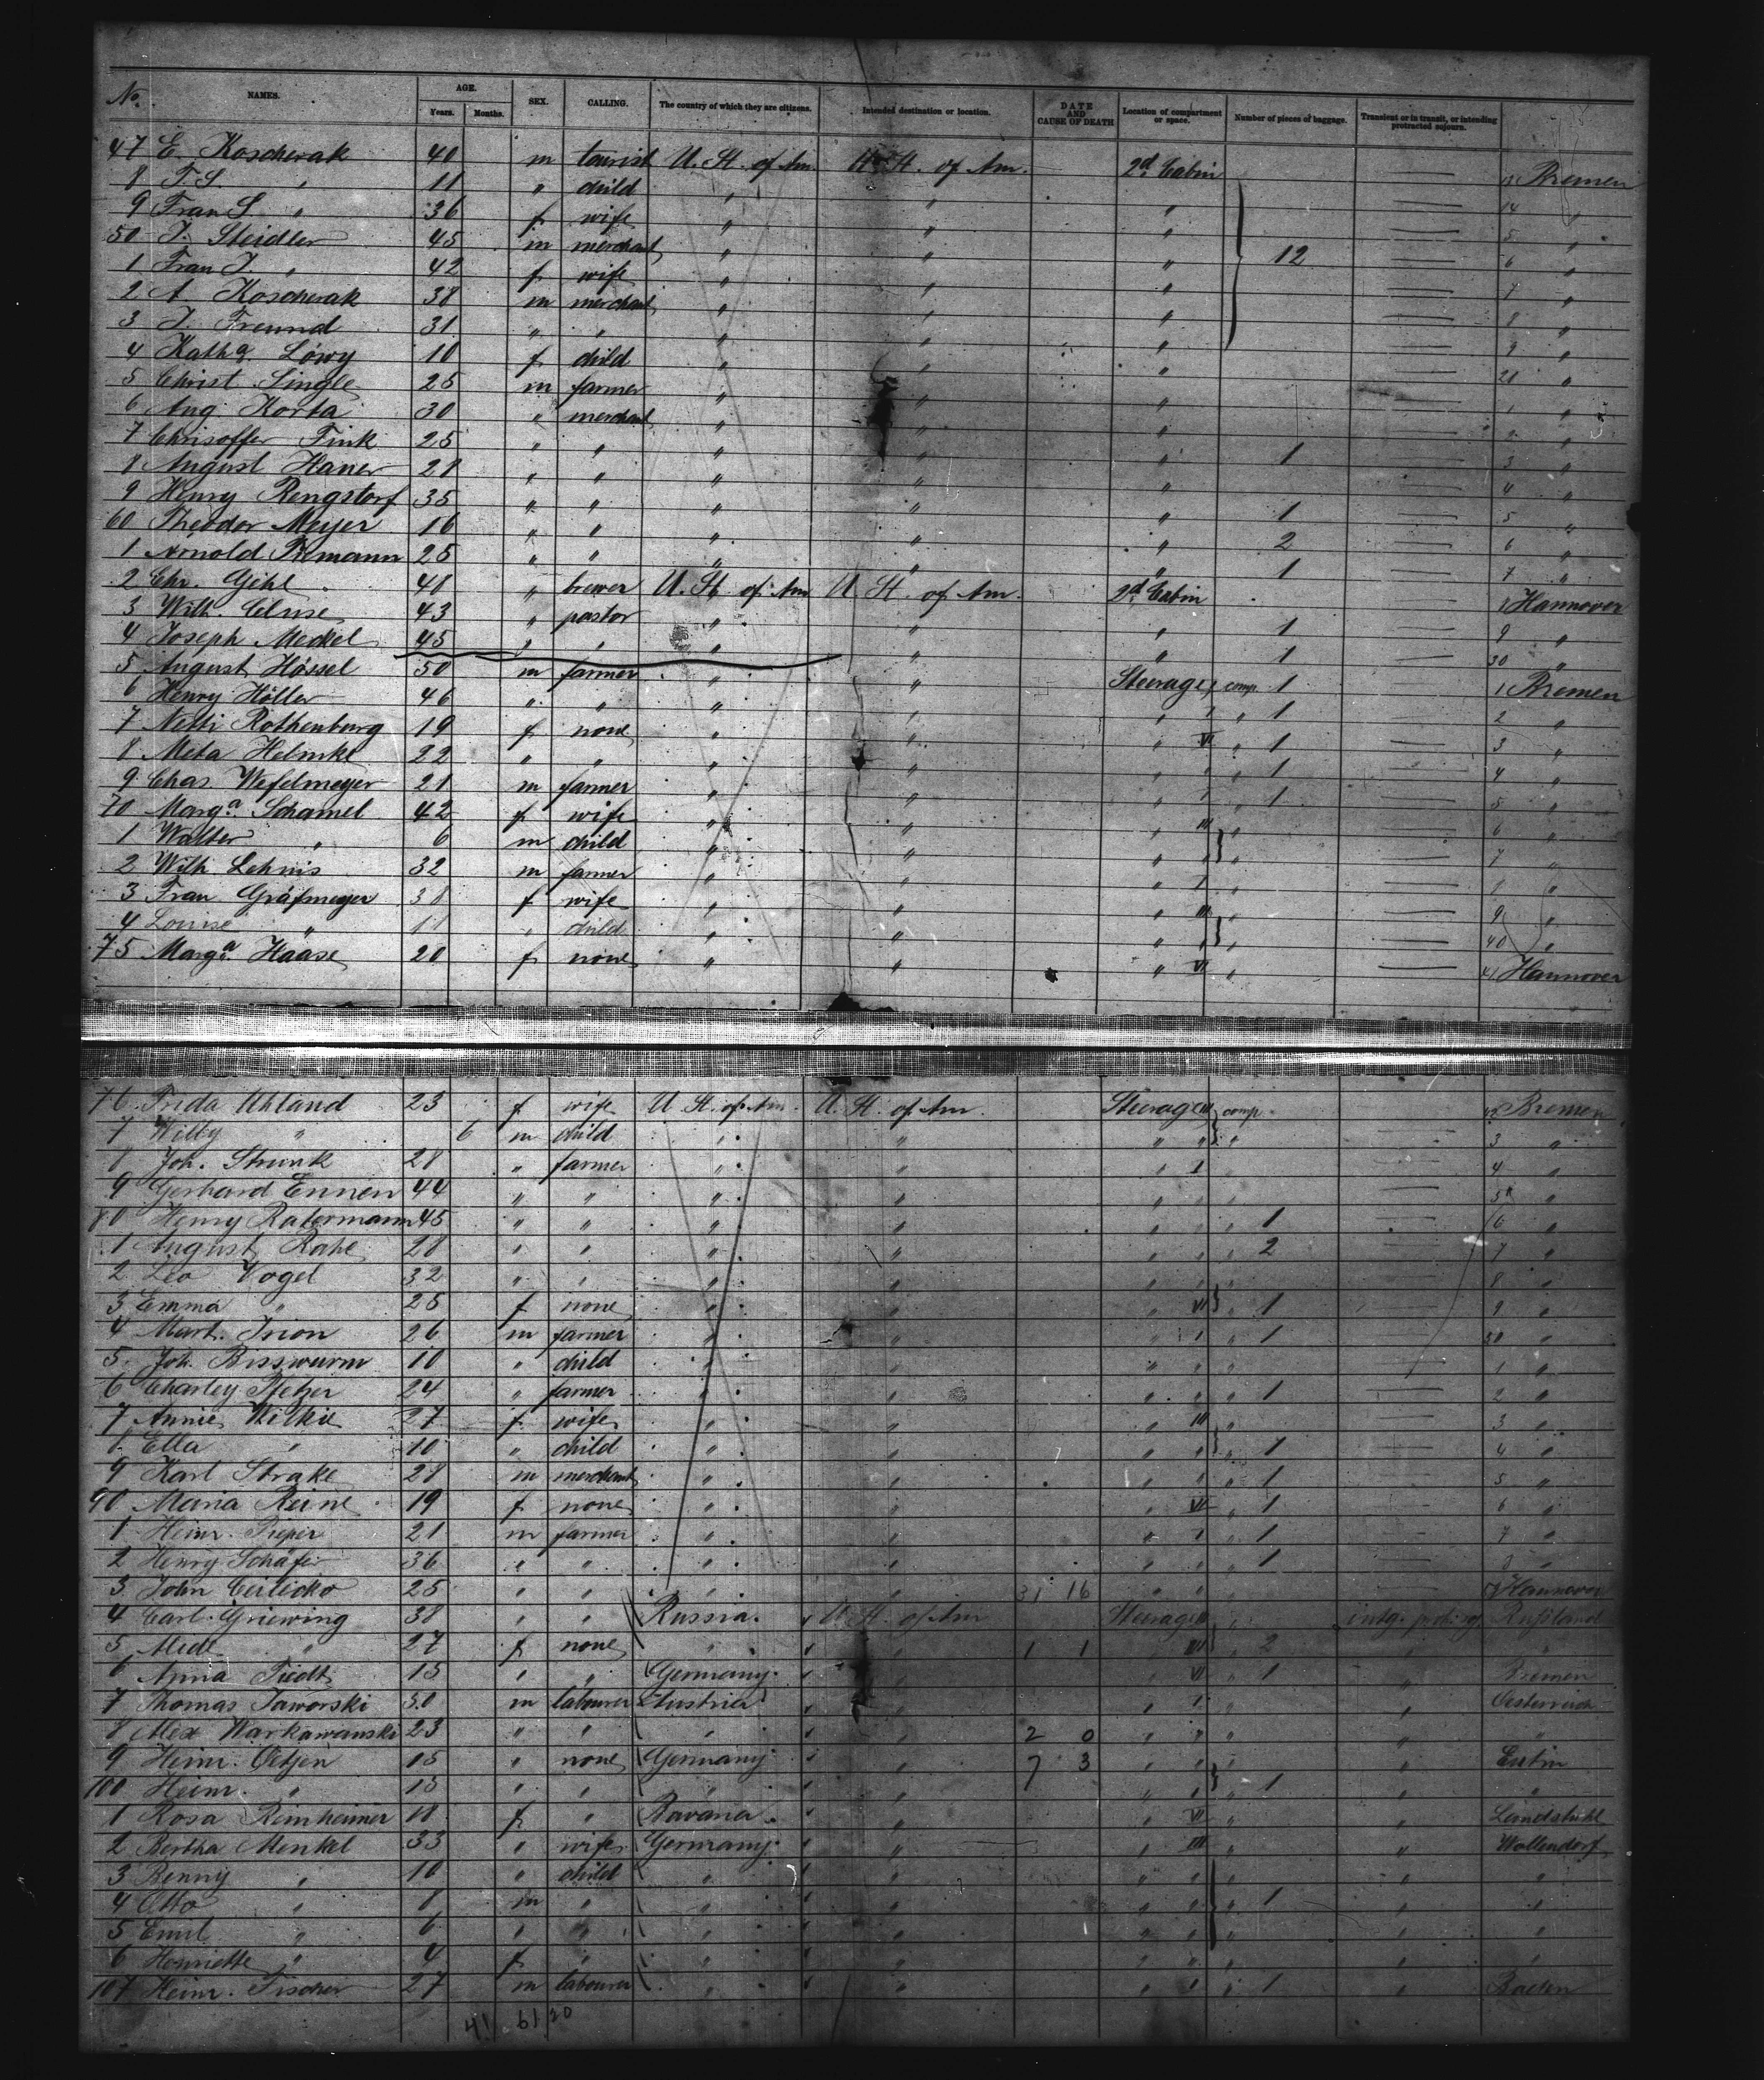 No. NAMES. AGE. Years. Months. SEX. CALLING. The country of which they are citizens. Intended destination or location. DATE AND CAUSE OF DEATH Location of compartment or space. Number of pieces of baggage. Transient or in transit, or intending protracted sojourn.
47 E. Koscherak 40 m tourist U. St. of Am. U. St. of Am. 2d Cabin Bremen
8 T. S. " 11 " child " " " 14 "
9 Frau S. " 36 f wife " " " 5 "
50 J. Steidler 45 m merchant " " " 12 6 "
1 Frau J. " 42 f wife " " " 7 "
2 A. Koscherak 38 m merchant " " " 8 "
3 J. Freund 31 " " " " " 9 "
4 Katha. Löwy 10 f child " " " 20 "
5 Christ. Single 25 m farmer " " " 1 "
6 Aug. Korta 30 " merchant " " " 2 "
7 Chrisoffer Fink 25 " " " " " 1 3 "
8 August Haner 28 " " " " " 4 "
9 Henry Rengstorf 35 " " " " " 1 5 "
60 Theodor Meyer 16 " " " " " 2 6 "
1 Arnold Tiemann 25 " " " " " 1 7 "
2 Chr. Gihl 48 " brewer U. St. of Am U. St. of Am. 2d Cabin 8 Hannover
3 Wilh. Cluse 43 " pastor " " " 1 9 "
4 Joseph Meckel 45 " " " " " 1 30 "
5 August Hössel 50 m farmer " " Steerage I comp. 1 1 Bremen
6 Henry Höller 46 " " " " " " " 1 2 "
7 Netti Rothenburg 19 f none " " " VI " 1 3 "
8 Meta Helmke 22 " " " " " " " 1 4 "
9 Chas. Wefelmeyer 21 m farmer " " " I " 1 5 "
70 Marga. Schamel 42 f wife " " " III " 6 "
1 Walter " 6 m child " " " " " 7 "
2 Wilh. Lehnis 32 m farmer " " " I " 8 "
3 Frau Gräfmeyer 38 f wife " " " III " 9 "
4 Louise " 11 " child " " " " " 40 "
75 Marga. Haase 20 f none " " " VI " 41 Hannover
76 Frida Uhland 23 f wife U. St. of Am. U. St. of Am. Steerage III comp. 42 Bremen
7 Willy " 6 m child " " " " " 3 "
8 Joh. Strunk 28 " farmer " " " I 4 "
9 Gerhard Ennen 44 " " " " " " " 5 "
80 Henry Ratermann 45 " " " " " " " 1 6 "
1 August Rahe 28 " " " " " " " 2 7 "
2 Leo Vogel 32 " " " " " " " 8 "
3 Emma " 25 f none " " " VI " 1 9 "
4 Mart. Irion 26 m farmer " " " I " 1 50 "
5 Joh. Bisswurm 10 " child " " " " " 1 "
6 Charley Pfetzer 24 " farmer " " " " " 1 2 "
7 Annie Wilkie 27 f wife " " " III " 3 "
8 Ella " 10 " child " " " " " 1 4 "
9 Karl Strake 28 m merchant " " " " " 1 5 "
90 Maria Reine 19 f none " " " VI " 1 6 "
1 Heinr. Pieper 21 m farmer " " " I " 1 7 "
2 Henry Schäfer 36 " " " " " " " 1 8 "
3 John 25 " " " " 31 16 " " " Hannover
4 Carl Griewing 38 " " Russia. U. St. of Am Steerage Rußland
5 27 f none " " 1 1 " III " 2 " "
6 Anna Tiedt 15 " " Germany. " " VI " 1 " Bremen
7 Thomas Jaworski 30 m labourer Austria " " I " " Oesterreich
8 Alex Warkawanski 23 " " " " 2 0 " " " " "
9 Heinr. Oetjen 15 " none Germany. " 7 3 " " " " Eutin
100 Heinr. " 15 " " " " " " " 1 " "
1 Rosa Reinheimer 18 f " Bavaria. " " VI " " Landstuhl
2 Bertha Menkel 33 " wife Germany. " " III " " Wallendorf
3 Benny " 10 " child " " " " " " "
4 Otto " 8 m " " " " " " 1 " "
5 Emil " 6 " " " " " " " " "
6 Henriette " 4 f " " " " " " " "
107 Heinr. Fischer 27 m labourer " " " I " 1 " Baden
41 61 20